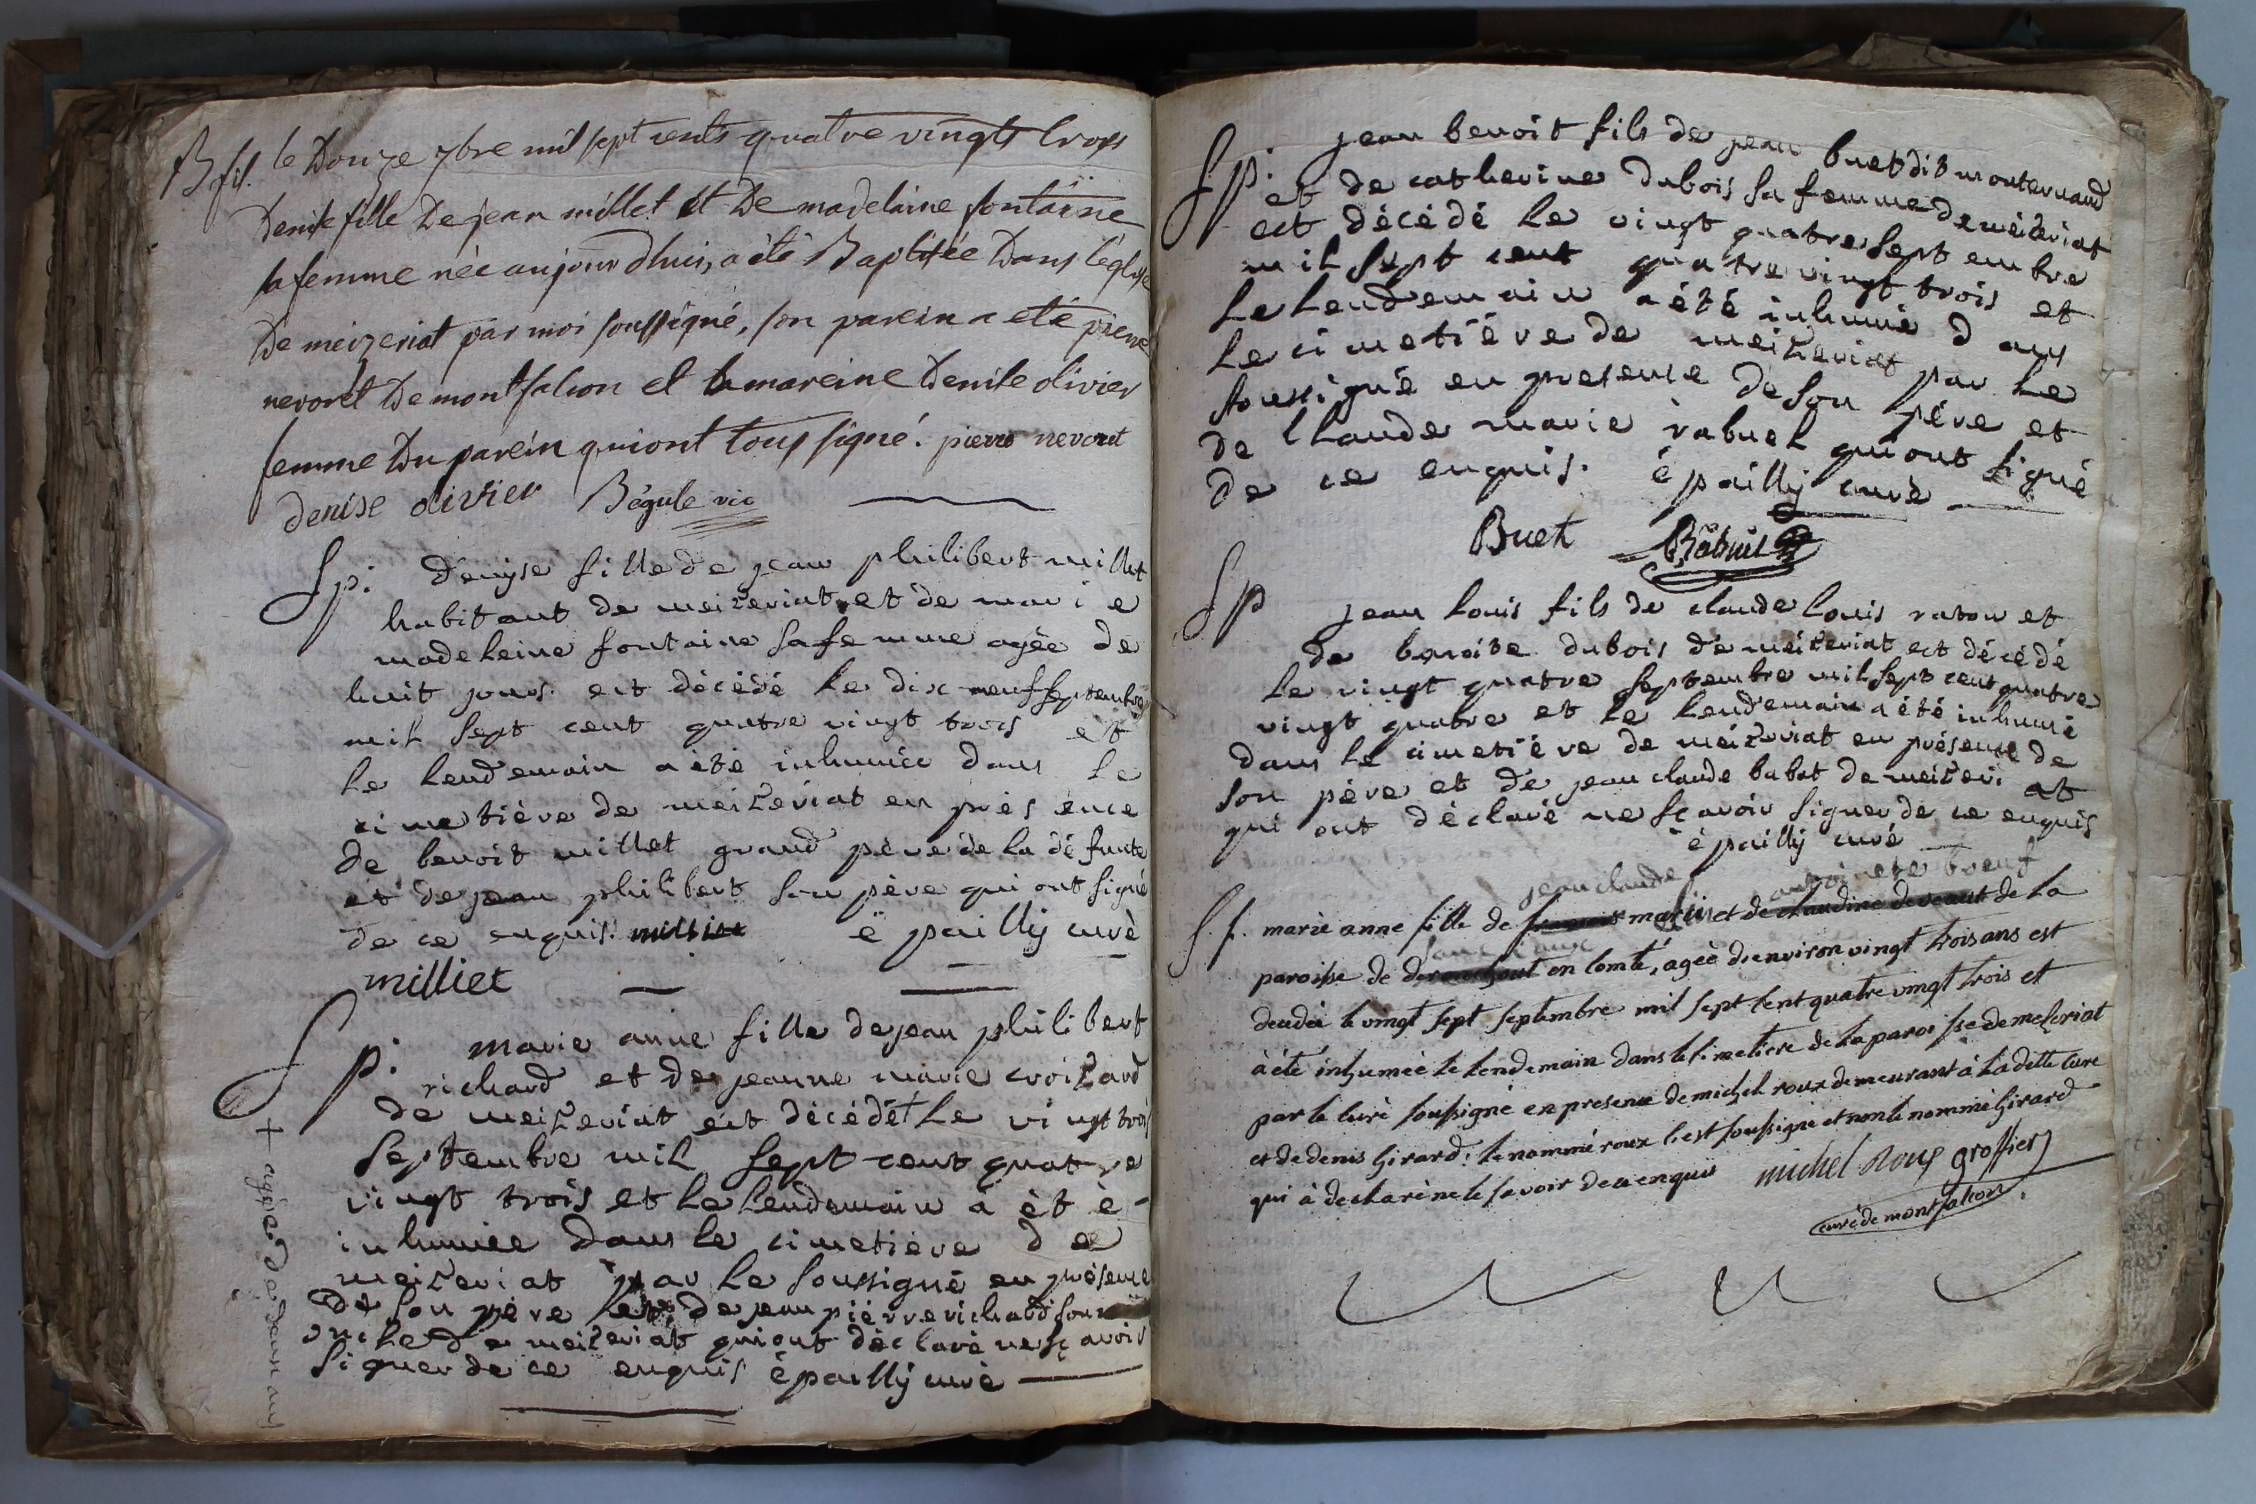 B fil. le Douze 7bre mil sept cents quatre vingts trois
Denise fille De jean millet et De madelaine fontaine
sa femme née aujourd'huis, a été Baptisée Dans l'église
De meizeriat par moi soussigné, son parein a eté pierre
nevoret De montfalcon et la mareine Denise olivier
femme Du parein qui ont tous signé. pierre nevoret
denise olivier Bégule vic
Sp: denyse fille de jean philibert millet
habitant de meizeriat et de marie
madeleine fontaine sa femme agée de
huit jours est décédé le dix neuf septembre
mil sept cent quatre vingt trois et
le lendemain a été inhumée dans le
cimetière de meizeriat en présence
de benoit millet grand père de la défunte
et de jean philibert son père qui ont signé
de ce enquis. épailly curé
milliet
Sp: marie anne fille de jean philibert
richard et de jeanne marie croizard
de meizeriat est décédé + le vingt trois
septembre mil sept cent quatre
vingt trois et le lendemain a été
inhumée dans le cimetière de
meizeriat par le soussigné en présence
de son père et de jean pièrre richard son
oncle de meizeriat qui ont déclaré ne sçavoir
signer de ce enquis épailly curé
+ agée de deux ans
Sp: jean benoit fils de jean buet dit monternaud
et de catherine dubois sa femme de meizeriat
est décédé le vingt quatre septembre
mil sept cent quatre vingt trois et
le lendemain a été inhumé dans
le cimetière de meizeriat par le
soussigné en presence de son père et
de Claude marie rabuel qui ont signé
de ce enquis. épailly curé
Buet Rabuel
Sp jean louis fils de claude louis raton et
de benoite dubois de meizeriat est décédé
le vingt quatre septembre mil sept cent quatre
vingt quatre et le lendemain a été inhumé
dans le cimetière de meizeriat en présence de
son père et de jean claude babat de meizeriat
qui ont déclaré ne sçavoir signer de ce enquis
épailly curé
jean claude antoinete bœuf
S. f. marie anne fille de martin et de claudine deveaux de la
paroisse de en comté, agée d'environ vingt trois ans est
decedée le vingt sept septembre mil sept cent quatre vingt trois et
à été inhumée le lendemain dans le cimetiere de la paroisse de meseriat
par le curé soussigné en presence de michel roux demeurant à la ditte cure
et de denis Girard; le nommé roux s'est soussigné et non le nommé Girard
qui à declaré ne le savoir de ce enquis michel Roux groffier
curé de montfalcon.